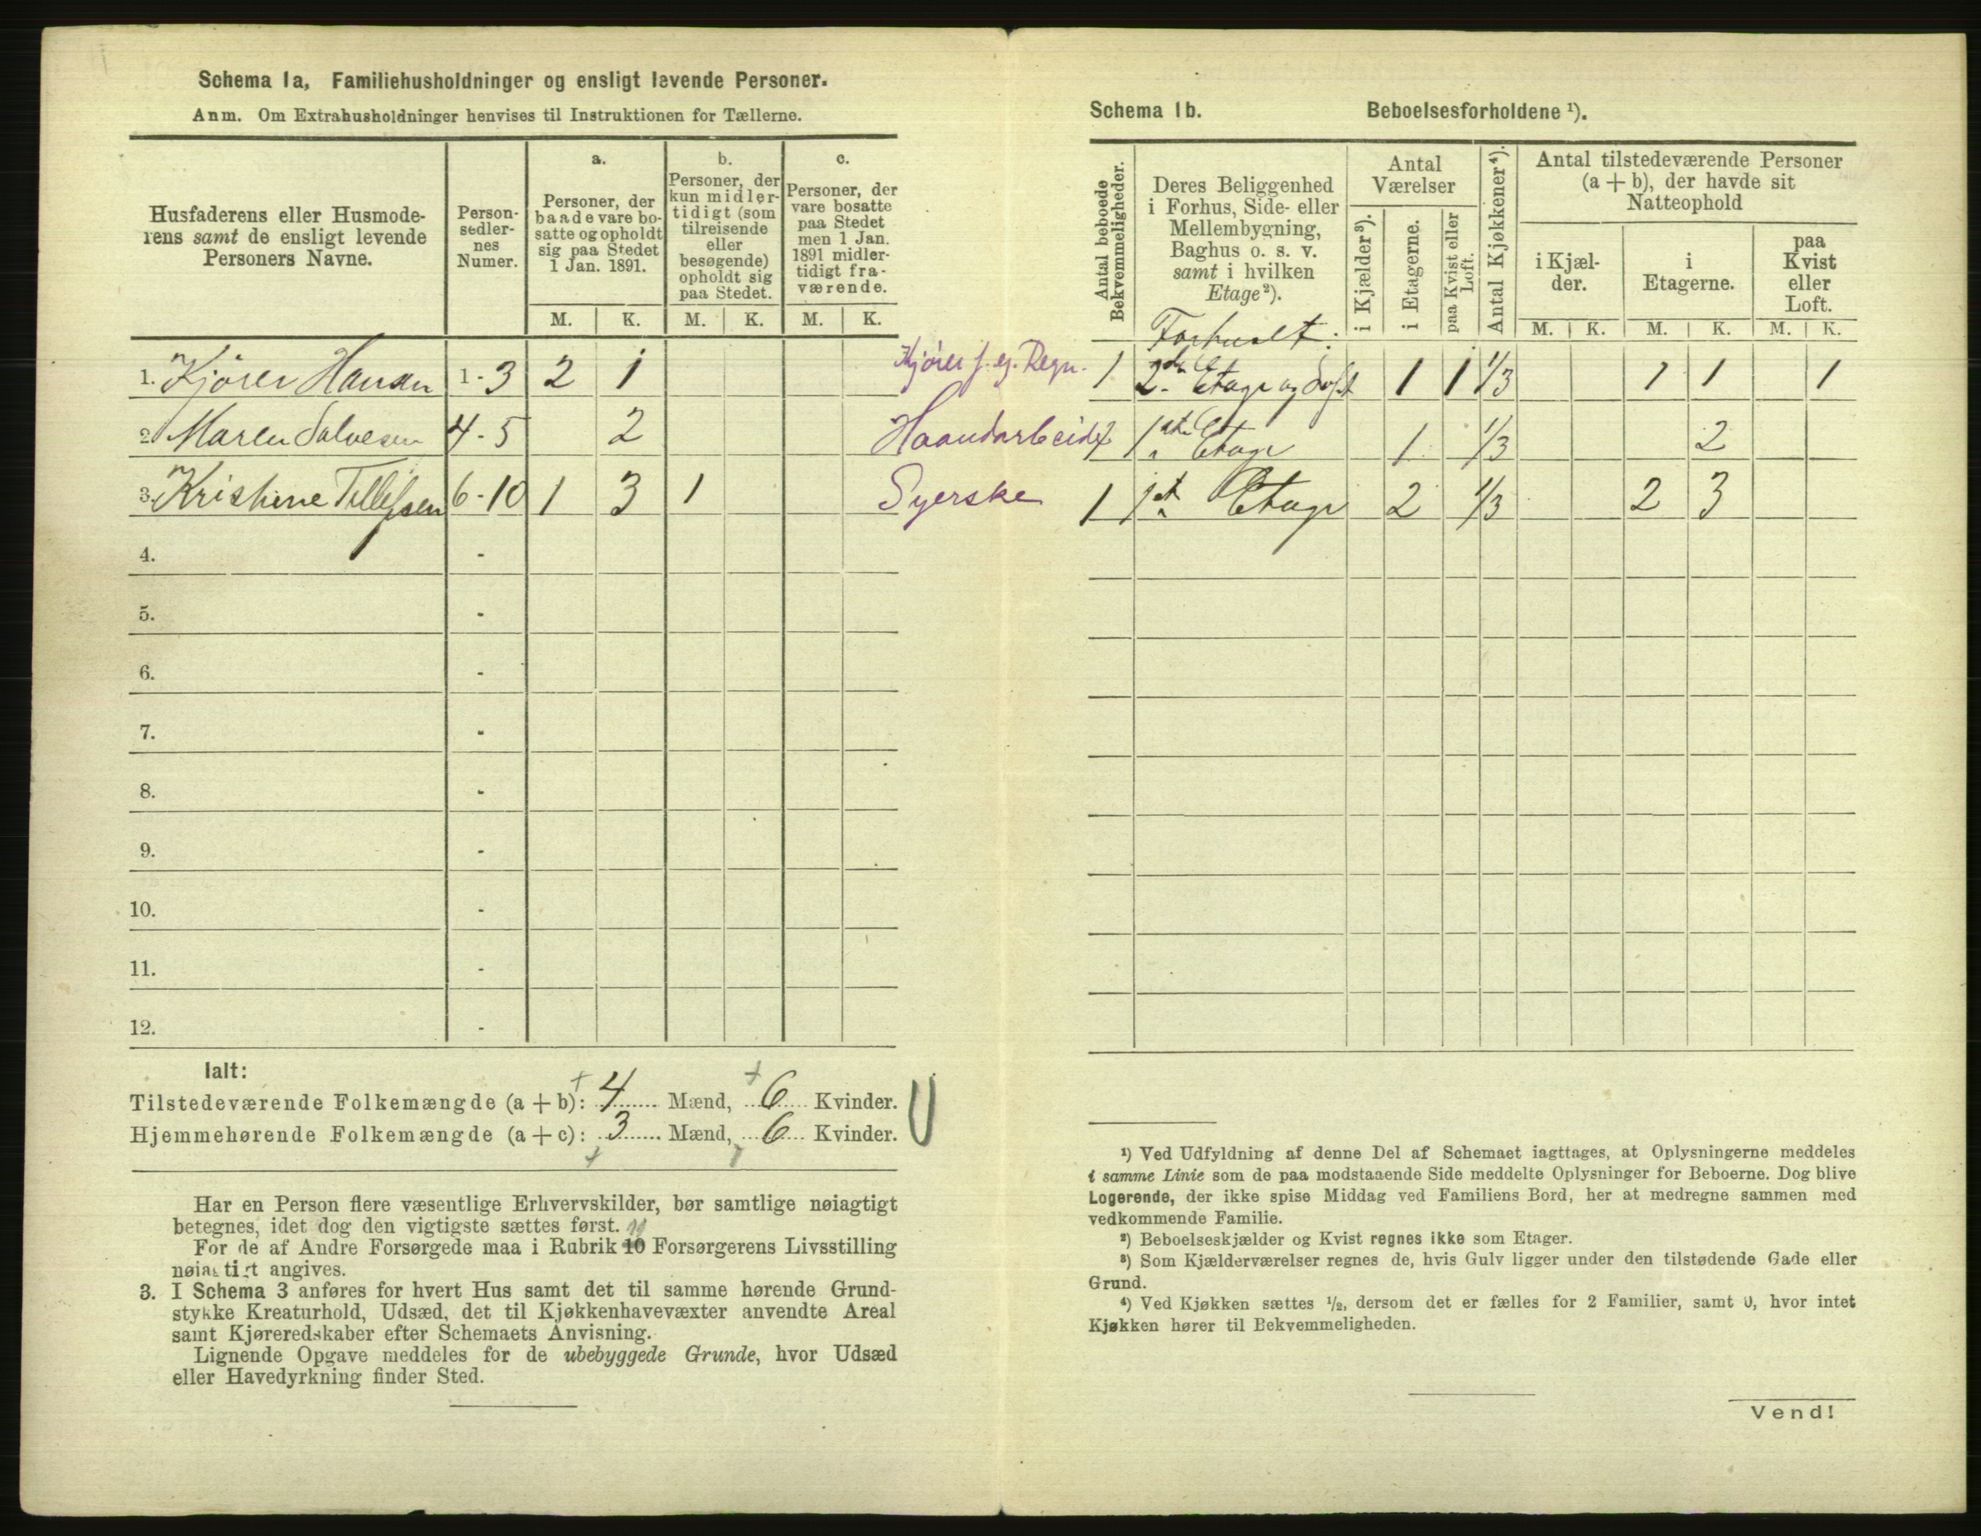 Schema 1a, Familiehusholdninger og ensligt levende Personer.
Anm. Om Extrahusholdninger henvises til Instruktionen for Tællerne.
Husfaderens eller Husmoderens samt de ensligt levende Personers Navne.
Personsedlernes Numer.
a.
Personer, der baade vare bosatte og opholdt sig paa Stedet 1 Jan. 1891.
b.
Personer, der kun midlertidigt (som tilreisende eller besøgende) opholdt sig paa Stedet.
c.
Personer, der vare bosatte paa Stedet men 1 Jan. 1891 midlertidigt fraværende.
M. K. M. K. M. K.
1. Kjører Hansen 1-3 2 1 Kjører f. eg. Regn.
2. Maren Salvesen 4-5 2 Haandarbeide
3. Kristine Tellefsen 6-10 1 3 1 Syerske
4. -
5. -
6. -
7. -
8. -
9. -
10. -
11. -
12. -
Ialt:
Tilstedeværende Folkemængde (a + b): 4 Mænd, 6 Kvinder.
Hjemmehørende Folkemængde (a + c): 3 Mænd, 6 Kvinder.
Har en Person flere væsentlige Erhvervskilder, bør samtlige nøiagtigt
betegnes, idet dog den vigtigste sættes først.
For de af Andre Forsørgede maa i Rubrik 10 Forsørgerens Livsstilling
nøiagtigt angives.
3. I Schema 3 anføres for hvert Hus samt det til samme hørende Grund-
stykke Kreaturhold, Udsæd, det til Kjøkkenhavevæxter anvendte Areal
samt Kjøreredskaber efter Schemaets Anvisning.
Lignende Opgave meddeles for de ubebyggede Grunde, hvor Udsæd
eller Havedyrkning finder Sted.
Schema 1b. Beboelsesforholdene ¹).
Antal beboede Bekvemmeligheder.
Deres Beliggenhed i Forhus, Side- eller Mellembygning, Baghus o. s. v. samt i hvilken Etage²).
Antal Værelser
i Kjælder³).
i Etagerne.
paa Kvist eller Loft.
Antal Kjøkkener⁴).
Antal tilstedeværende Personer (a + b), der havde sit Natteophold
i Kjælder.
i Etagerne.
paa Kvist eller Loft.
M. K. M. K. M. K.
1 2den Etage og Loft 1 1 1/3 1 1 1
1 1ste Etage 1 1/3 2
1 1st Etage 2 1/3 2 3
¹) Ved Udfyldning af denne Del af Schemaet iagttages, at Oplysningerne meddeles
i samme Linie som de paa modstaaende Side meddelte Oplysninger for Beboerne. Dog blive
Logerende, der ikke spise Middag ved Familiens Bord, her at medregne sammen med
vedkommende Familie.
²) Beboelseskjælder og Kvist regnes ikke som Etager.
³) Som Kjælderværelser regnes de, hvis Gulv ligger under den tilstødende Gade eller
Grund.
⁴) Ved Kjøkken sættes ½, dersom det er fælles for 2 Familier, samt 0, hvor intet
Kjøkken hører til Bekvemmeligheden.
Vend!